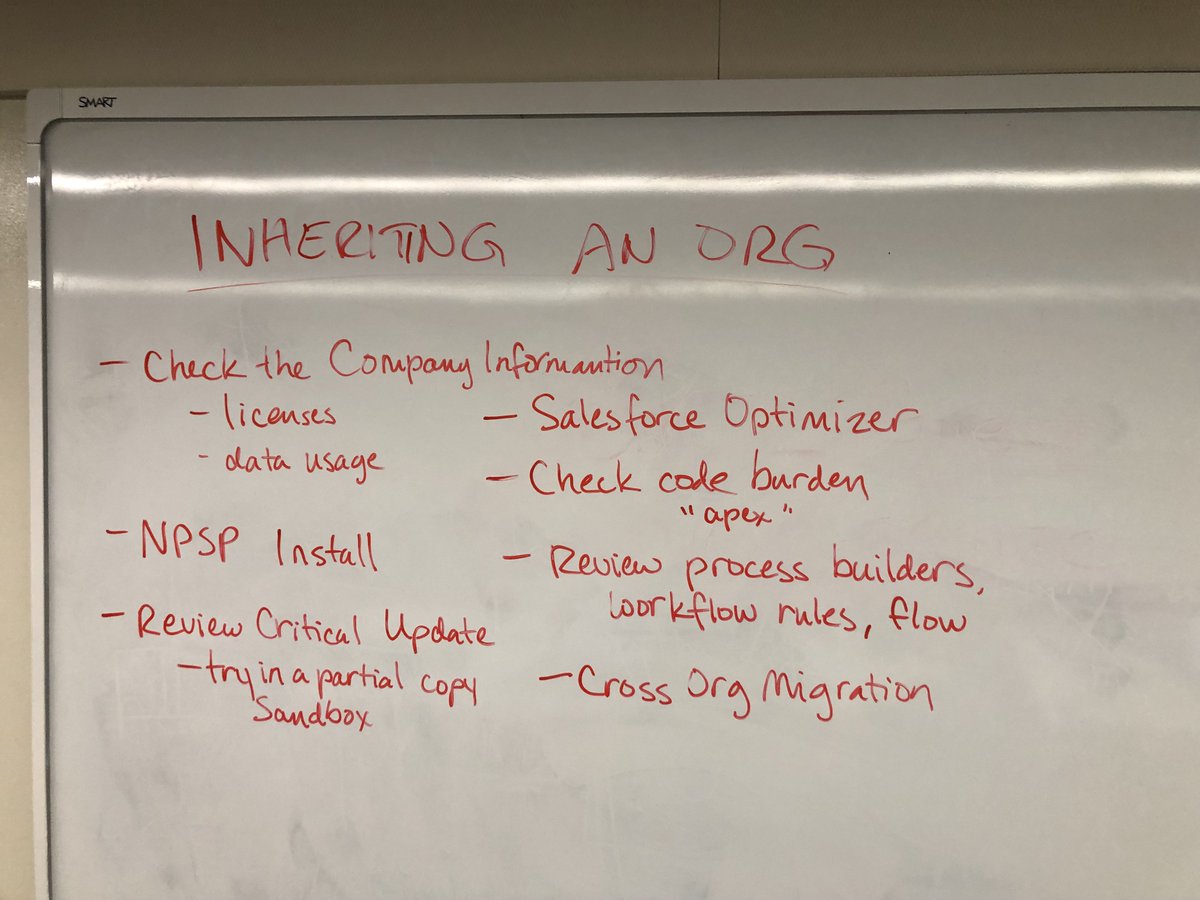 SMART
INHERITING AN ORG
- Check the Company Informantion
- licenses
- data usage
- NPSP Install
- Review Critical Update
- try in a partial copy
Sandbox
- Salesforce Optimizer
- Check code burden
"apex"
- Review process builders,
workflow rules, flow
- Cross Org Migration